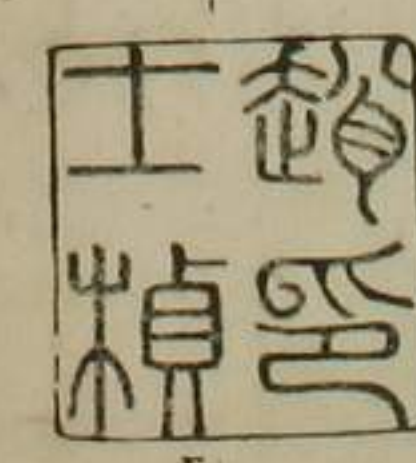 趙印
士楨